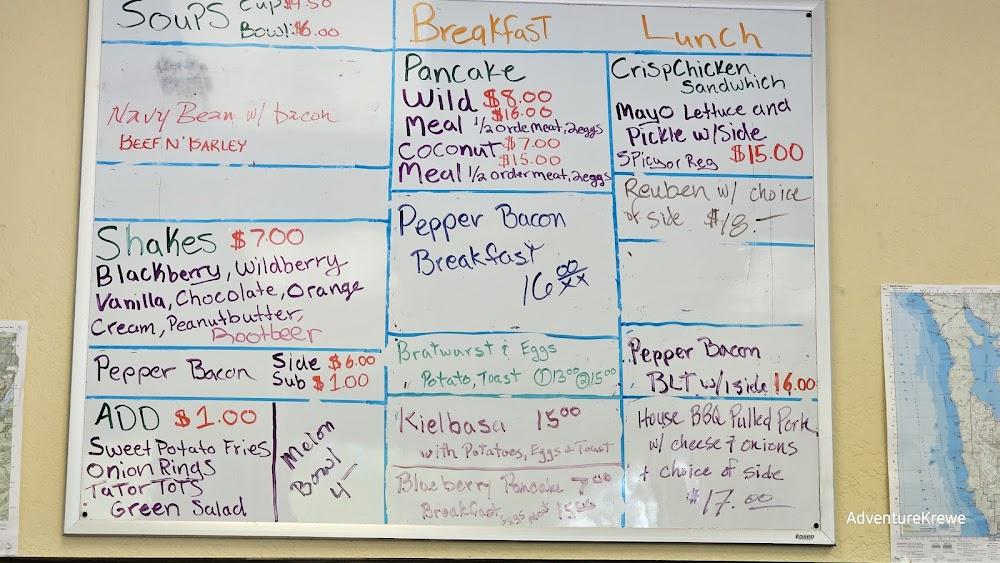 Soups Cup $4.50
Bowl: $6.00
Navy Bean w/ bacon
BEEF N' BARLEY
Shakes $7.00
Blackberry, Wildberry
Vanilla, Chocolate, Orange
Cream, Peanutbutter,
Rootbeer
Pepper Bacon Side $6.00
Sub $1.00
ADD $1.00
Sweet Potato Fries
Onion Rings
TaTor TOTS
Green Salad
Melon
Bowl
4-
Breakfast
Pancake
Wild $8.00
$16.00
Meal 1/2 orde meat, 2eggs
Coconut $7.00
$15.00
Meal 1/2 order meat, 2eggs
Pepper Bacon
Breakfast
16 00/xx
Bratwurst & Eggs
Potato, Toast ① 13.00 ② 15.00
Kielbasa 15.00
with Potatoes, Eggs & Toast
Blueberry Pancake 7.00
Breakfast, eggs meat 15.00
Lunch
Crisp Chicken
Sandwhich
Mayo Lettuce and
Pickle w/Side
SPicy or Reg $15.00
Reuben w/ choice
of side $18.-
Pepper Bacon
BLT w/1 side 16.00
House BBQ Pulled Pork
w/ cheese & onions
+ choice of side
$17.00
BOARD
AdventureKrewe